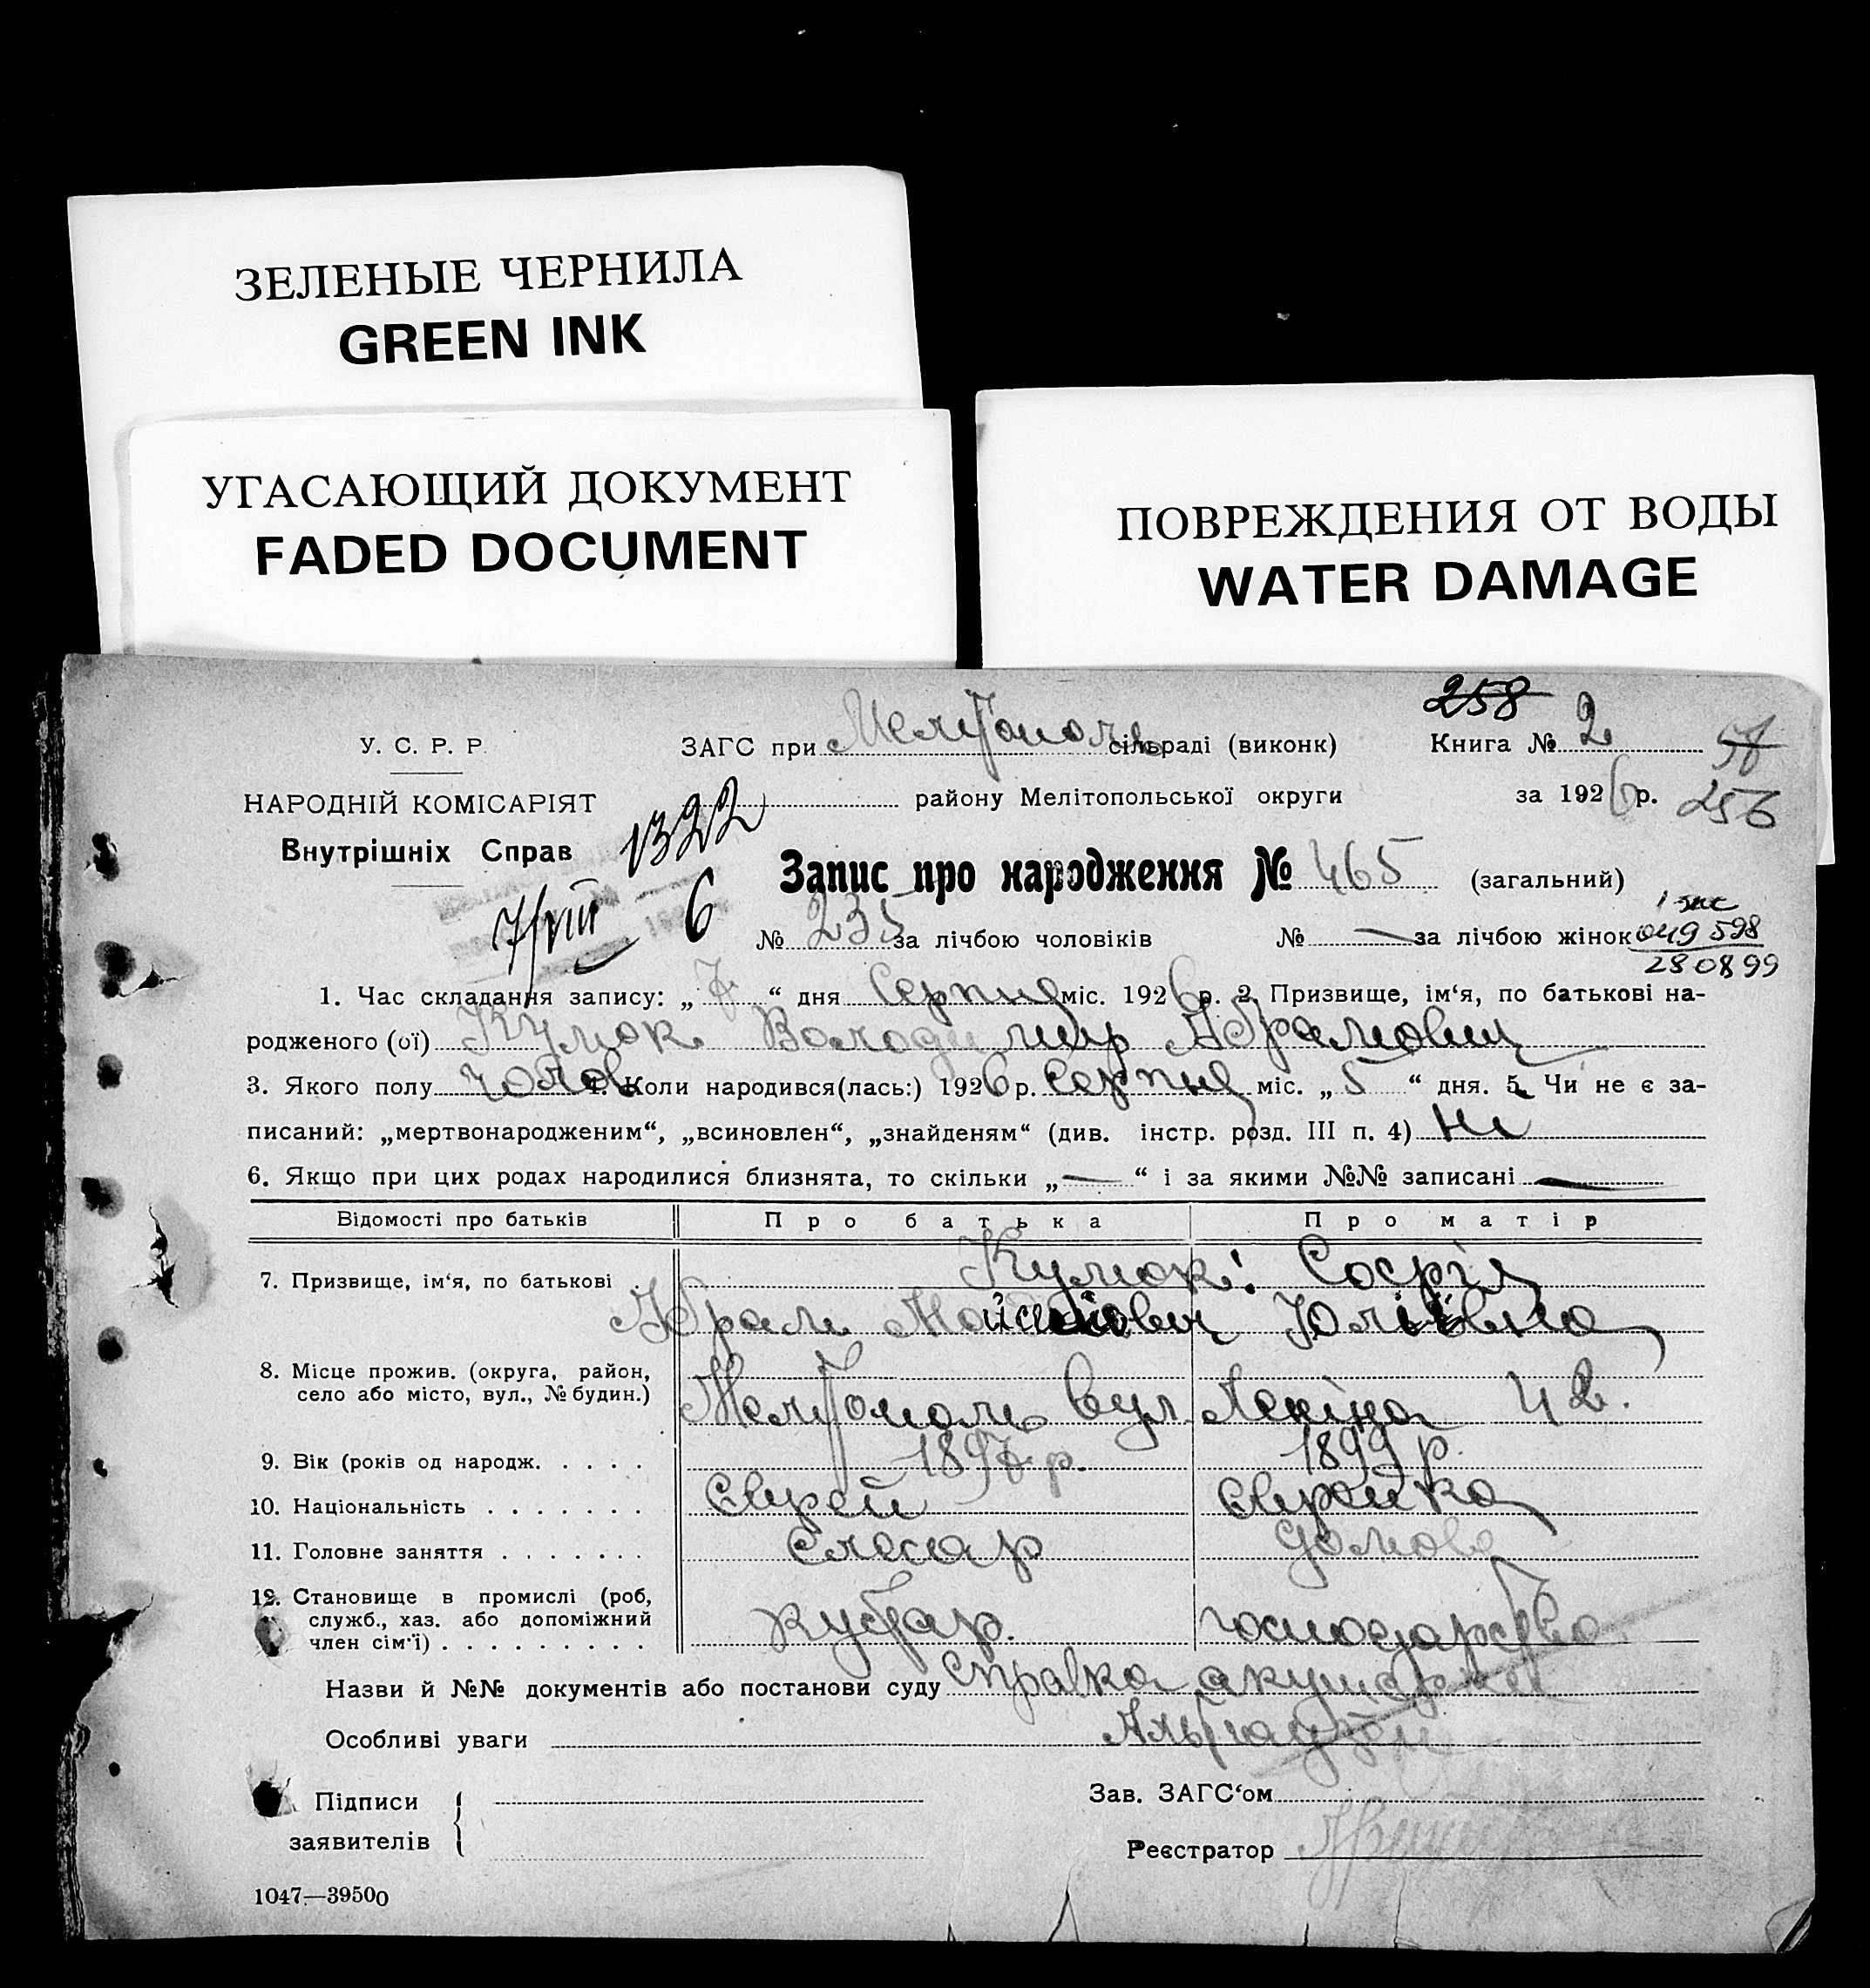 ЗЕЛЕНЫЕ ЧЕРНИЛА
GREEN INK
УГАСАЮЩИЙ ДОКУМЕНТ
FADED DOCUMENT
ПОВРЕЖДЕНИЯ ОТ ВОДЫ
WATER DAMAGE
258
У. С. Р. Р.
ЗАГС при Мелітополь сільраді (виконк) Книга № 2
НАРОДНІЙ КОМІСАРІЯТ
району Мелітопольської округи за 1926 р. 256
Внутрішніх Справ
1322
Запис про народження № 465 (загальний)
7/VIII 6
№ 235 за лічбою чоловіків № — за лічбою жінок 049598
280899
1. Час складання запису: „ 7 “ дня Серпня міс. 1926 р. 2. Призвище, ім‘я, по батькові на-
родженого (ої) Кумок Володимир Абрамович
3. Якого полу чолов. 4. Коли народився(лась:) 1926 р. Серпня міс. „ 5 “ дня. 5. Чи не є за-
писаний: „мертвонародженим“, „всиновлен“, „знайденям“ (див. інстр. розд. III п. 4) Ні
6. Якщо при цих родах народилися близнята, то скільки „ — “ і за якими №№ записані —
Відомості про батьків Про батька Про матір
7. Призвище, ім‘я, по батькові Кумок: Софія
Абрам Юліївна
8. Місце прожив. (округа, район,
село або місто, вул., № будин.)
Мелітополь вул. Леніна 42.
9. Вік (років од народж. . . . . 1897 р. 1899 р.
10. Національність . . . . . . . Єврей Єврейка
11. Головне заняття . . . . . . . Слесар домове
12. Становище в промислі (роб,
служб., хаз. або допоміжний
член сім‘ї) . . . . . . . . . кустар. господарство
Назви й №№ документів або постанови суду справка акушерки
Особливі уваги
Підписи
заявителів
Зав. ЗАГС‘ом
Реєстратор
1047—39500